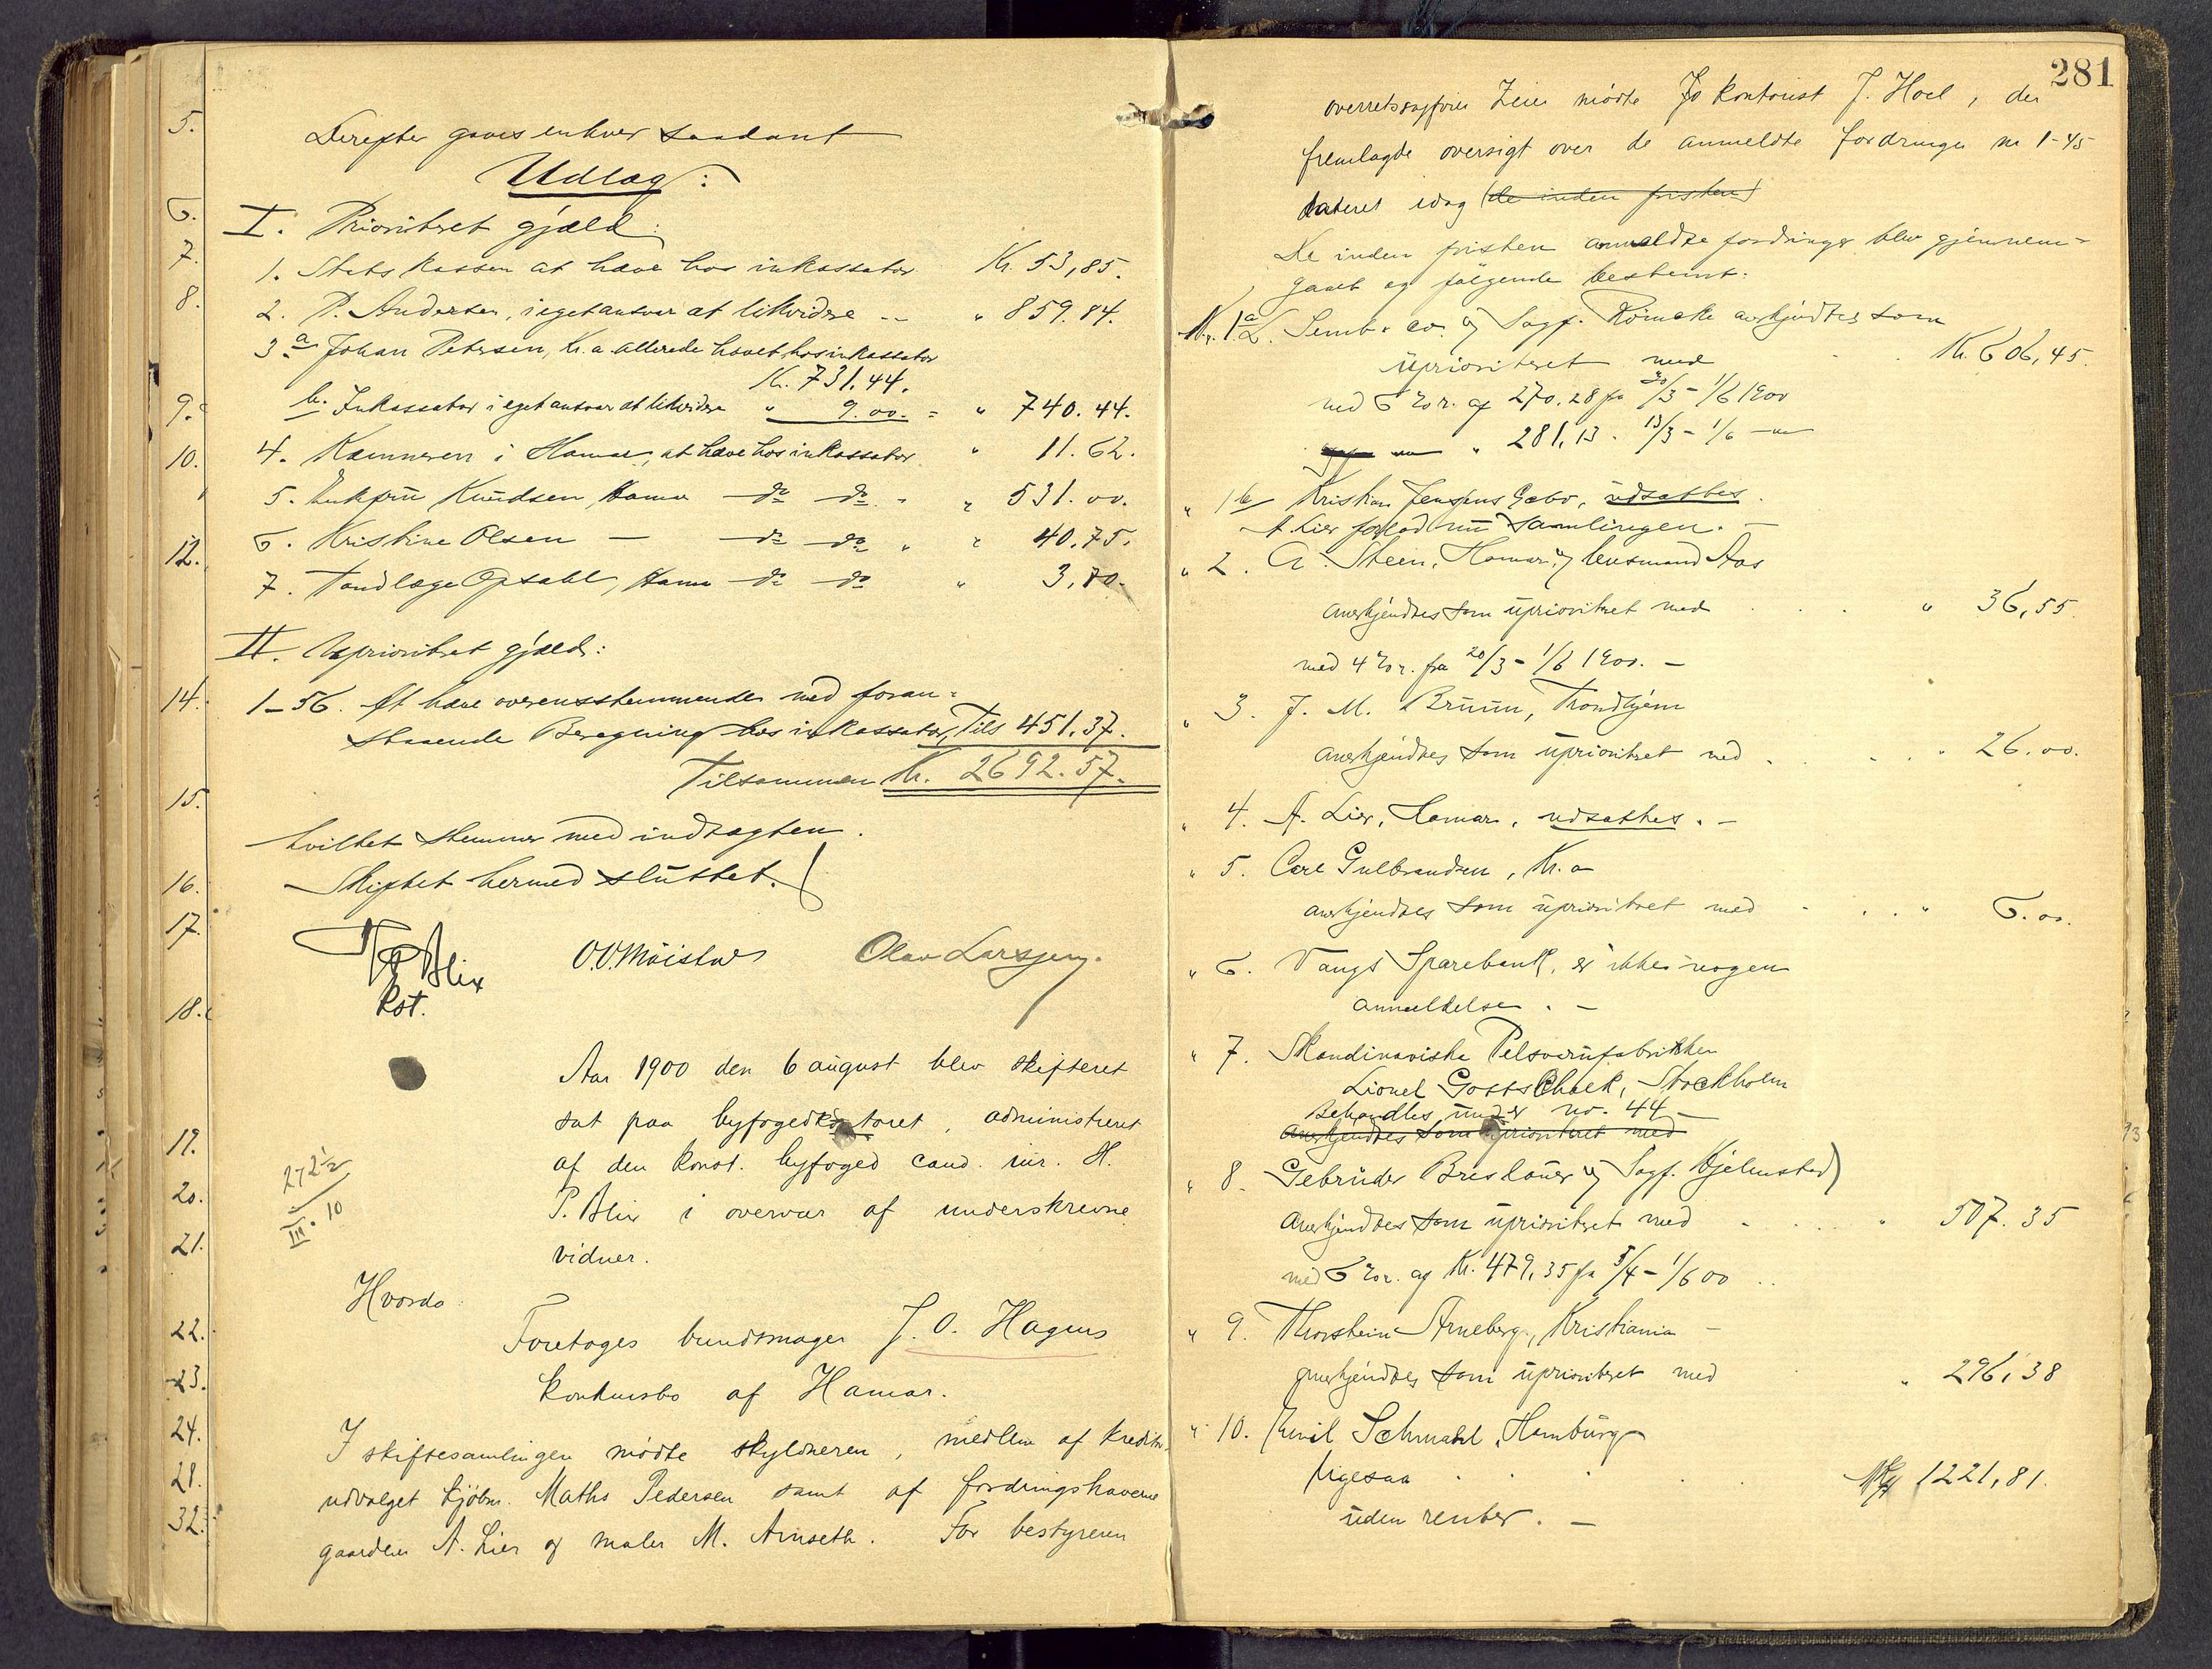 Derefter gaves enhver saadant
Udlæg:
I. Prioritert gjæld:
1. Statskassen at hæve hos inkassator Kr. 53,85.
2. P. Andersen, i eget ansvar at likvidere -- " 859.84.
3 a Johan Petersen, Kr.a. allerede hævet hos inkassator
Kr. 731.44.
b. Inkassator i eget ansvar at likvidere " 9.00. = " 740.44.
4. Kæmneren i Hamar, at hæve hos inkassator " 11.62.
5. Knudsen Hamar do do " 531.00.
6. Kristine Olsen — do do " " 40.75.
7. Tandlæge Opsahl, Hamar do do " 3,70.
II. Uprioritert gjæld:
1-56. At hæve overensstemmende med foran-
staaende Beregning hos inkassator, Tils 451.37.
Tilsammen Kr. 2692.57.
hvilket stemmer med indtægten.
Skiftet hermed sluttet.
H P Blix
kst.
O.O. Möistad
Olav Larssen.
Aar 1900 den 6 august blev skifteret
sat paa byfogedkontoret, administreret
af den konst. byfoged cand. jur. H.
P. Blix i overvær af underskrevne
vidner.
272½
III. 10
Hvorda:
Foretoges bundtmager J. O. Hagens
konkursbo af Hamar.
I skiftesamlingen mødte skyldneren, medlem af kreditor-
udvalget kjøbm. Maths Pedersen samt af fordringshaverne
gaardeier A. Lier og maler M. Arnseth. For bestyreren
5.
6.
7.
8.
9.
10.
12.
14.
15.
16.
17.
18.
19.
20.
21.
22.
23.
24.
28.
32.
281
overretssagfører mødte kontorist J. Hoel, der
fremlagde oversigt over de anmeldte fordringer nr 1-45
dateret idag (de inden fristen)
De inden fristen anmeldte fordringer blev gjennem-
gaaet og følgende bestemt:
Nr. 1a L. Semb & co. v/ Sagf. Römcke anerkjendtes som
uprioriteret med Kr. 606,45.
med 6% r. af 270.28 fra 30/3 - 1/6 1900
" 281,13. 13/3 - 1/6
" 1b Kristian Jensens Gæbo, udsattes.
A. Lier forlod nu samlingen. —
" 2. A. Steen, Hamar v/ lensmand Aas
anerkjendtes som uprioritert med " 36,55.
med 4% r. fra 20/3 - 1/6 1900. —
" 3. J. M. Bruun, Trondhjem
anerkjendtes som uprioritert med " 26.00.
" 4. A. Lier, Hamar, udsattes. —
" 5. Carl Gulbrandsen, Kr.a
anerkjendtes som uprioritert med " 6.00.
" 6. Vangs Sparebank, er ikke nogen
anmeldelse. —
" 7. Skandinaviske Pelsvarufabriken
Lionel Gottschalk, Stockholm
behandles under no. 44 —
anerkjendtes som uprioriteret med
" 8. Gebrüder Breslauer v/ Sagf. Hjelmstad)
anerkjendtes som uprioritert med " 507.35
med 6% r. af Kr. 479,35 fra 5/4 - 1/6 00
" 9. Thorstein Arneberg, Kristiania —
anerkjendtes som uprioritert med " 296,38
" 10. Emil Schmahl, Hamburg
ligesaa Mk 1221,81.
uden renter. —